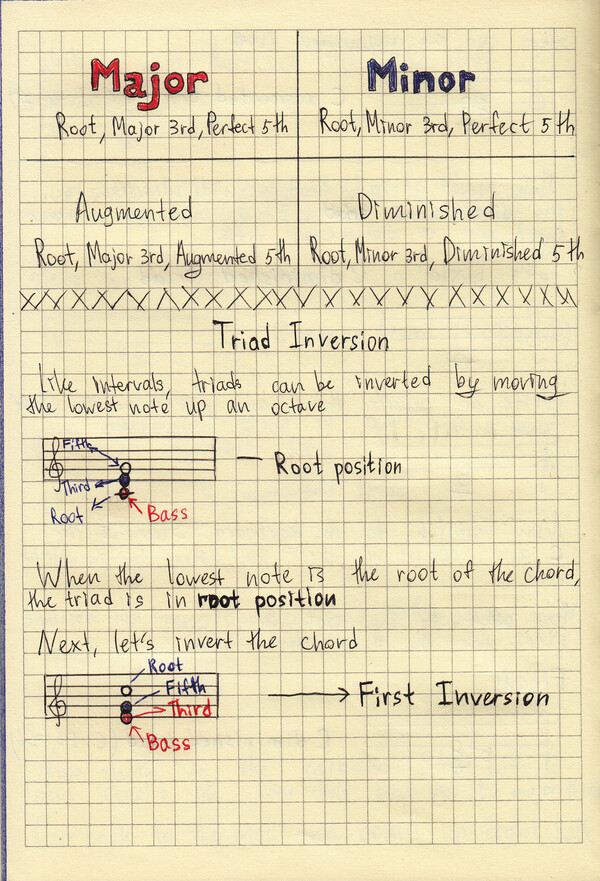 Major
Minor
Root, Major 3rd, Perfect 5th
Root, Minor 3rd, Perfect 5th
Augmented
Diminished
Root, Major 3rd, Augmented 5th
Root, Minor 3rd, Diminished 5th
Triad Inversion
Like intervals, triads can be inverted by moving
the lowest note up an octave
Fifth
Third
Root
Bass
Root position
When the lowest note is the root of the chord,
the triad is in root position
Next, let's invert the chord
Root
Fifth
Third
Bass
First Inversion